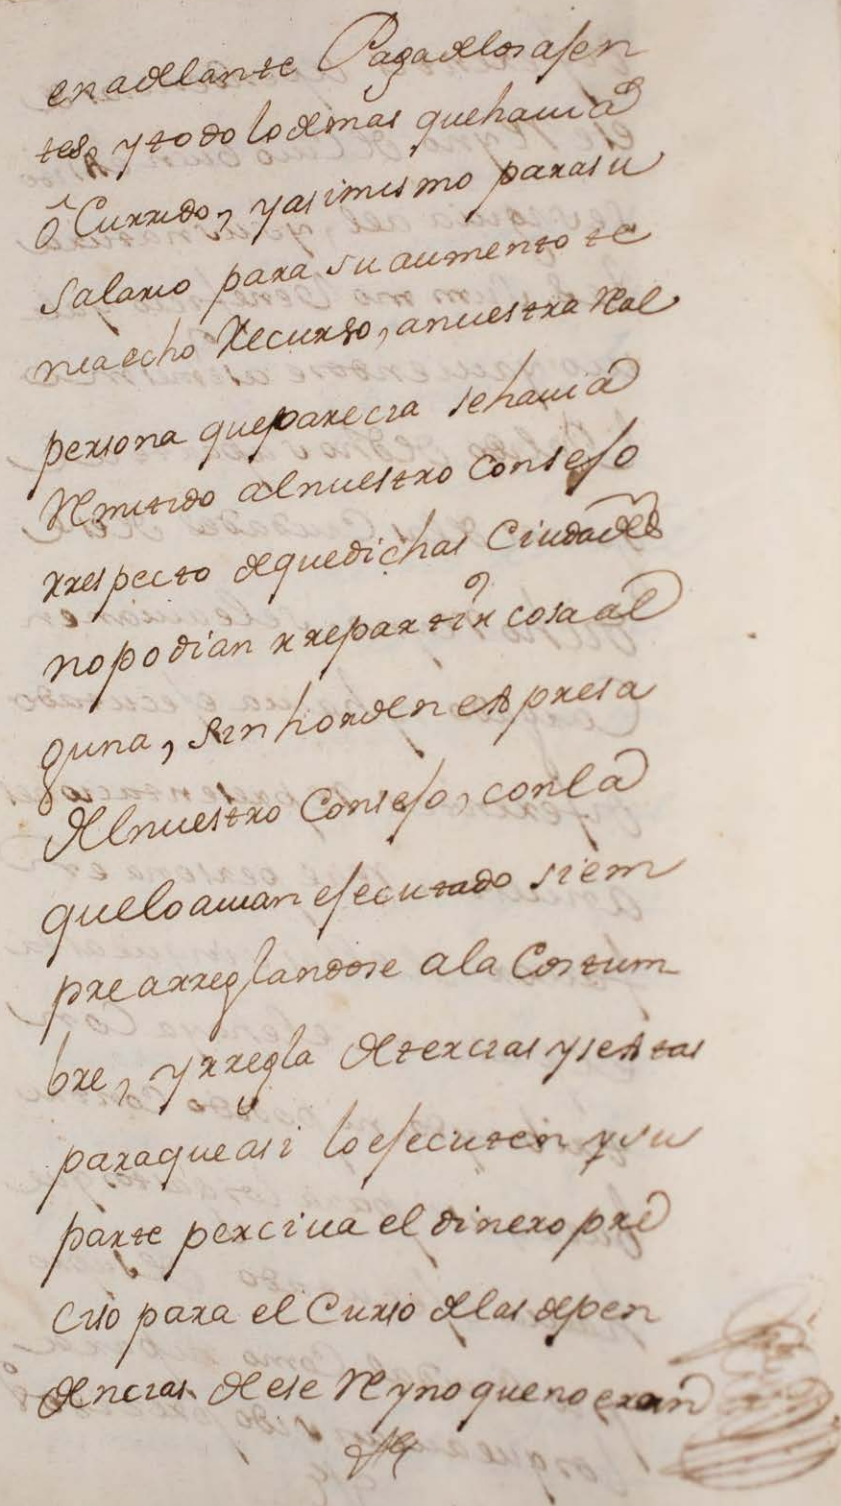 en adelante Paga de los asen
tes, y todo lo demas que havia
ôcurrido, y asimismo para su
salario para su aumento te
nia echo Recurso, a nuestra Real
persona que parecia se havia
Remitido al nuestro Consejo
rrespecto de que dichas Ciudades
no podian rrepartir cosa al
guna, sin horden espresa
del nuestro Consejo, con la
que lo avian ejecutado siem
pre arreglandose a la Costum
bre, y rregla de tercias y sestas
para que asi lo ejecuten y su
parte perciva el dinero pre
ciso para el Curso de las depen
dencias de ese Reyno que no eran